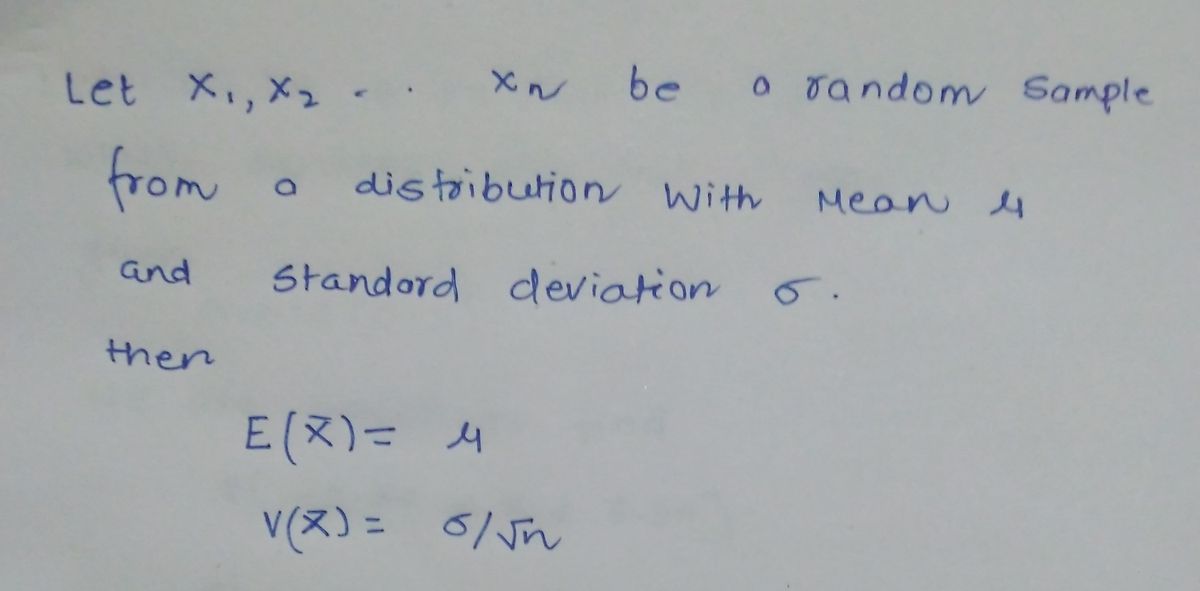 Let X₁, X₂ . . Xn be a random Sample
from a distribution With Mean μ
and Standard deviation σ.
then
E(X̄) = μ
V(X̄) = σ/√n